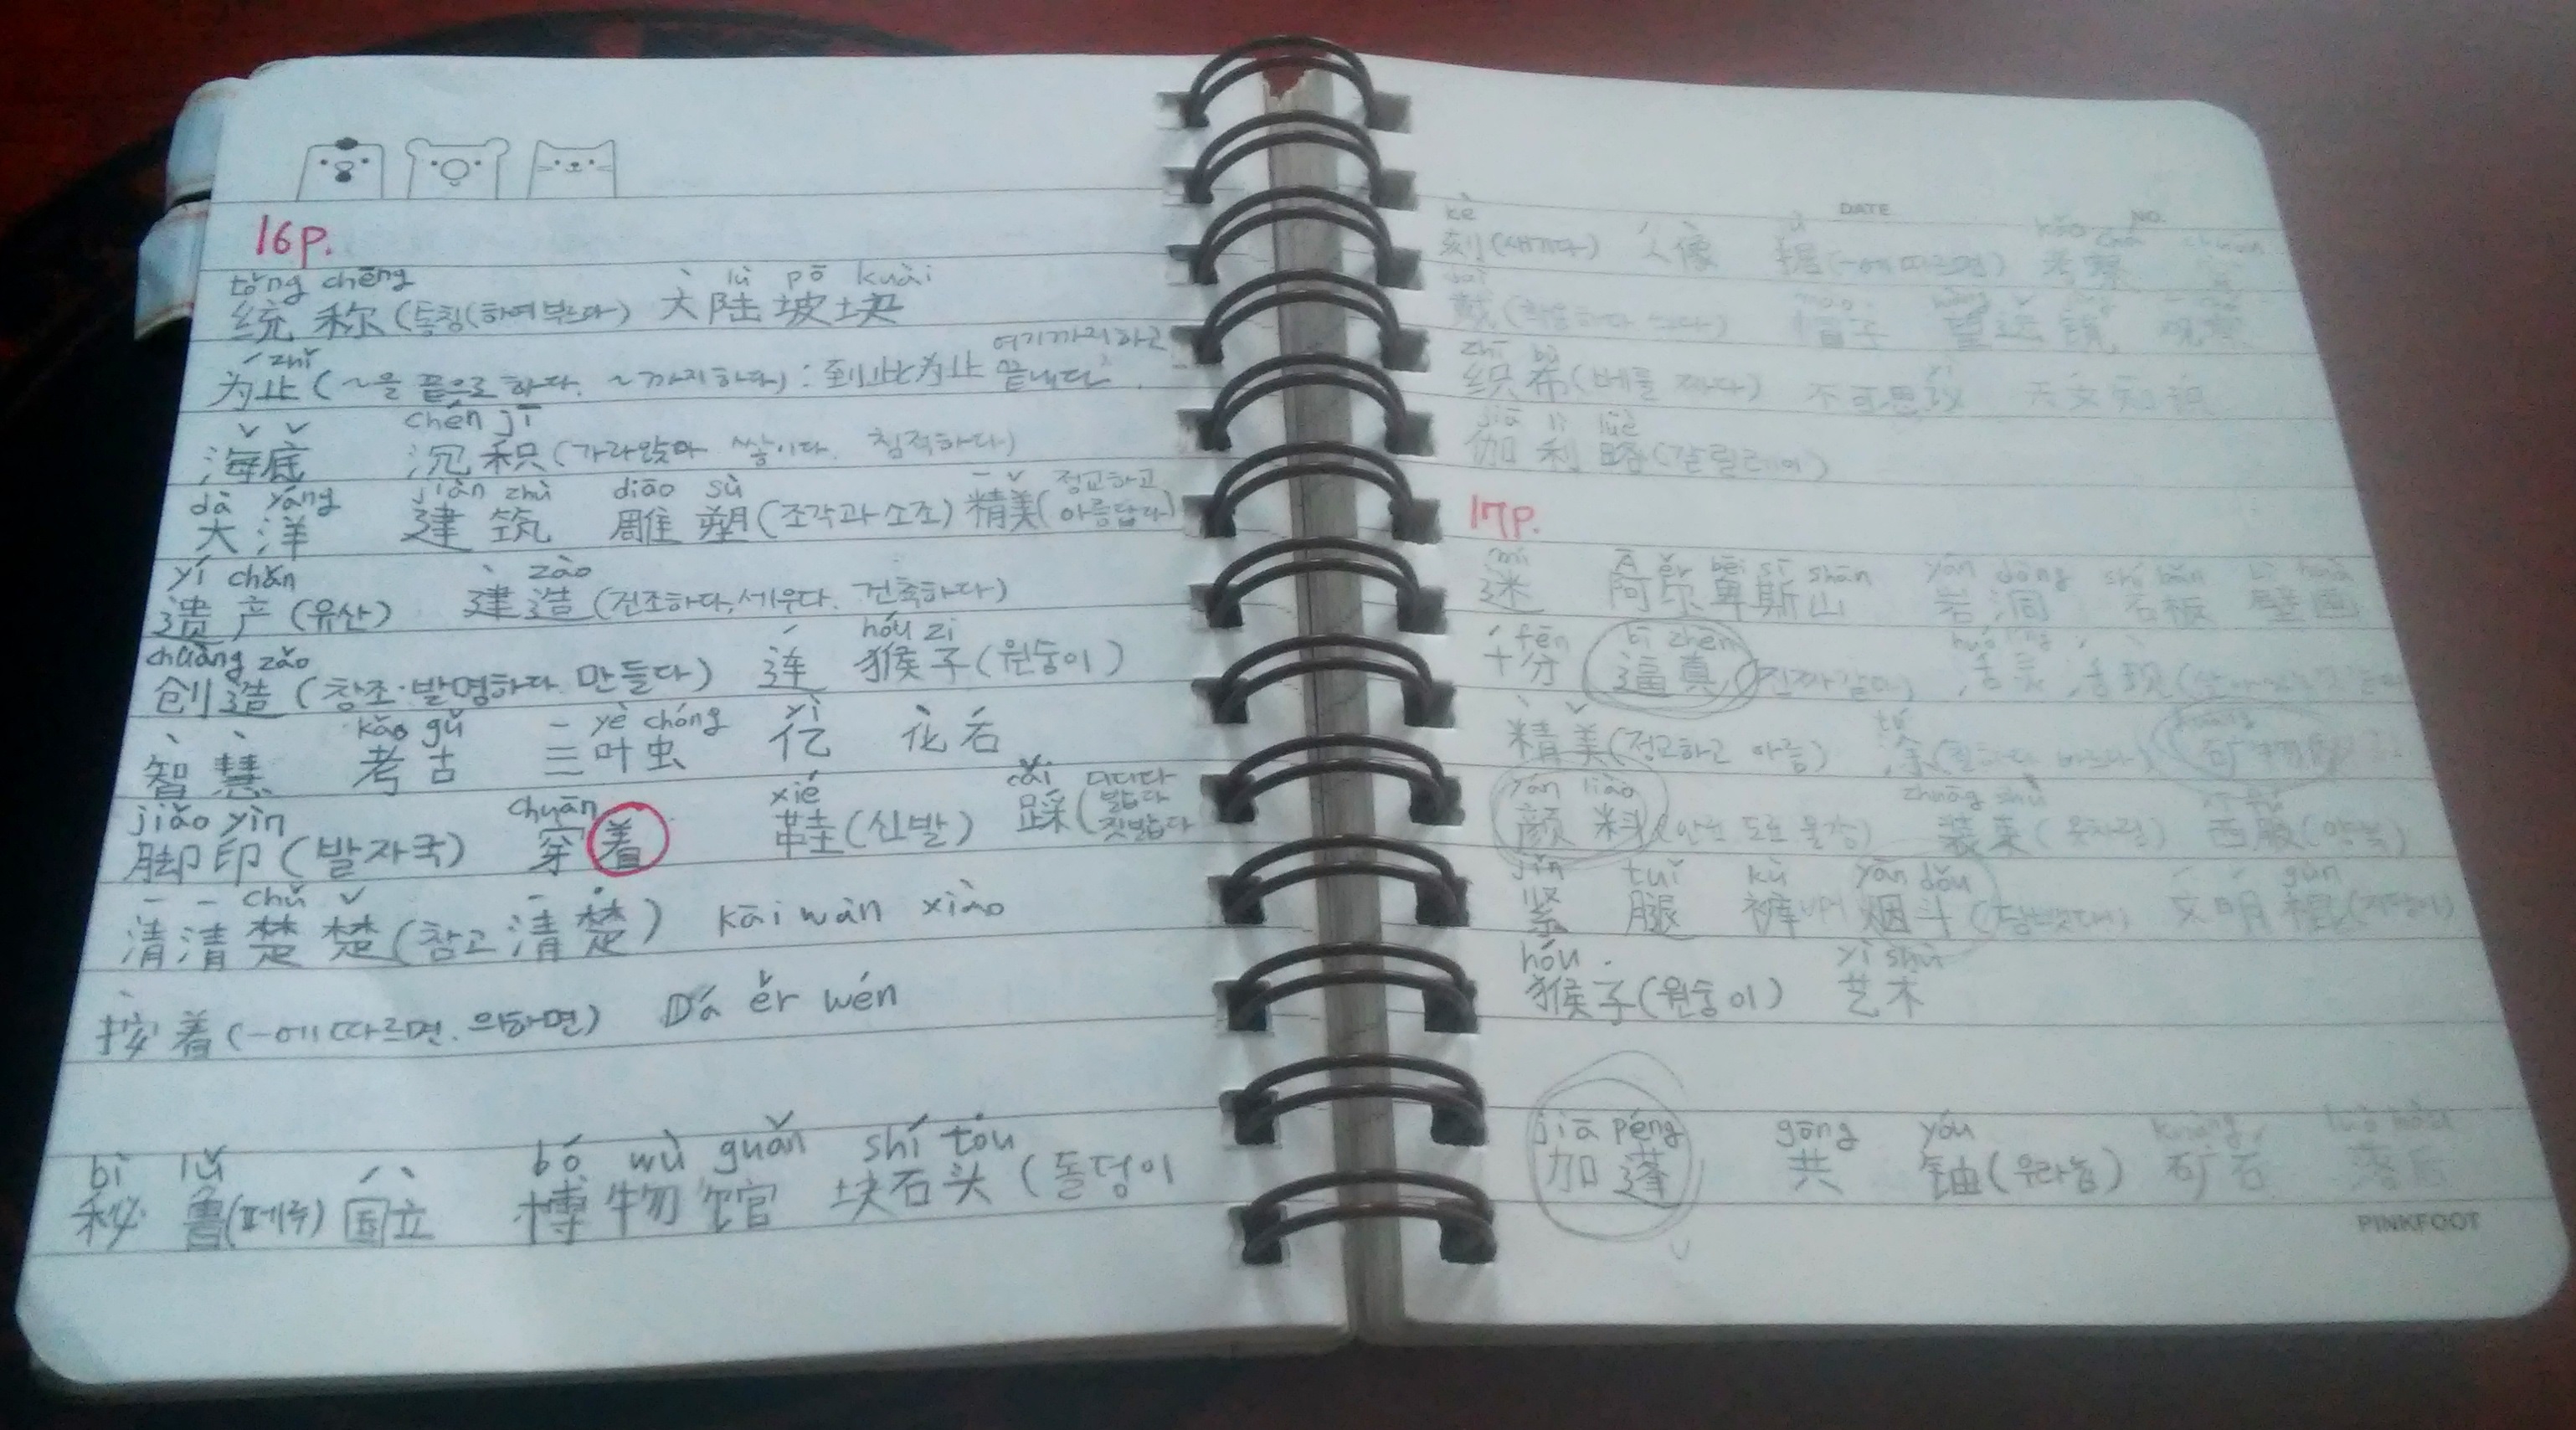 16p.
tǒng chēng
统称(통칭(하여 부르다) 大陆坡块
lù pō kuài
zhǐ
为止(~을 끝으로 하다. ~까지하다): 到此为止 여기까지하고 끝내다
海底 chén jī 沉积(가라앉아 쌓이다. 침적하다)
dà yáng jiàn zhù diāo sù
大洋 建筑 雕塑(조각과 소조) 精美(정교하고 아름답다)
yí chǎn zào
遗产(유산) 建造(건조하다, 세우다. 건축하다)
chuàng zǎo hóu zi
创造(창조·발명하다 만들다) 连 猴子(원숭이)
kǎo gǔ yè chóng yì
智慧 考古 三叶虫 亿 化石
jiǎo yìn chuān xié cǎi
脚印(발자국) 穿着 鞋(신발) 踩(디디다 밟다 짓밟다
chǔ
清清楚楚(참고 清楚) kāi wàn xiào
按着(-에 따르면. 의하면) Dá ěr wén
bì lǔ bó wù guǎn shí tóu
秘鲁(페루) 国立 博物馆 块石头(돌덩이
DATE NO.
kè
刻(새기다) 人像 据(-에 따르면) 考察
帽子 望远镜 观察
zhī bù
织布(베를 짜다) 不可思议 天文知识
jiā lì lüè
伽利略(갈릴레이)
17p.
mí Ā ěr bēi sī shān yán dòng shí bǎn
迷 阿尔卑斯山 岩洞 石板 壁画
fēn bī zhēn
十分 逼真(진짜같다) 活灵活现
精美(정교하고 아름) tú 涂(칠하다 바르다) 矿物
yán liào zhuāng shù
颜料(안료 도료 물감) 装束(옷차림) 西服(양복)
jǐn tuǐ kù yān dǒu gùn
紧腿裤 烟斗(담뱃대) 文明棍(지팡이)
hóu yì shù
猴子(원숭이) 艺术
jiā péng gōng yóu
加蓬 共 铀(우라늄) 矿石 落后
PINKFOOT